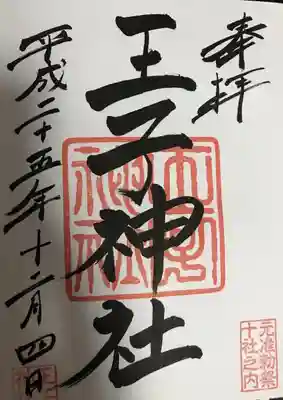 奉拝
元准勅祭
十社之内
王子神社
平成二十五年十二月四日